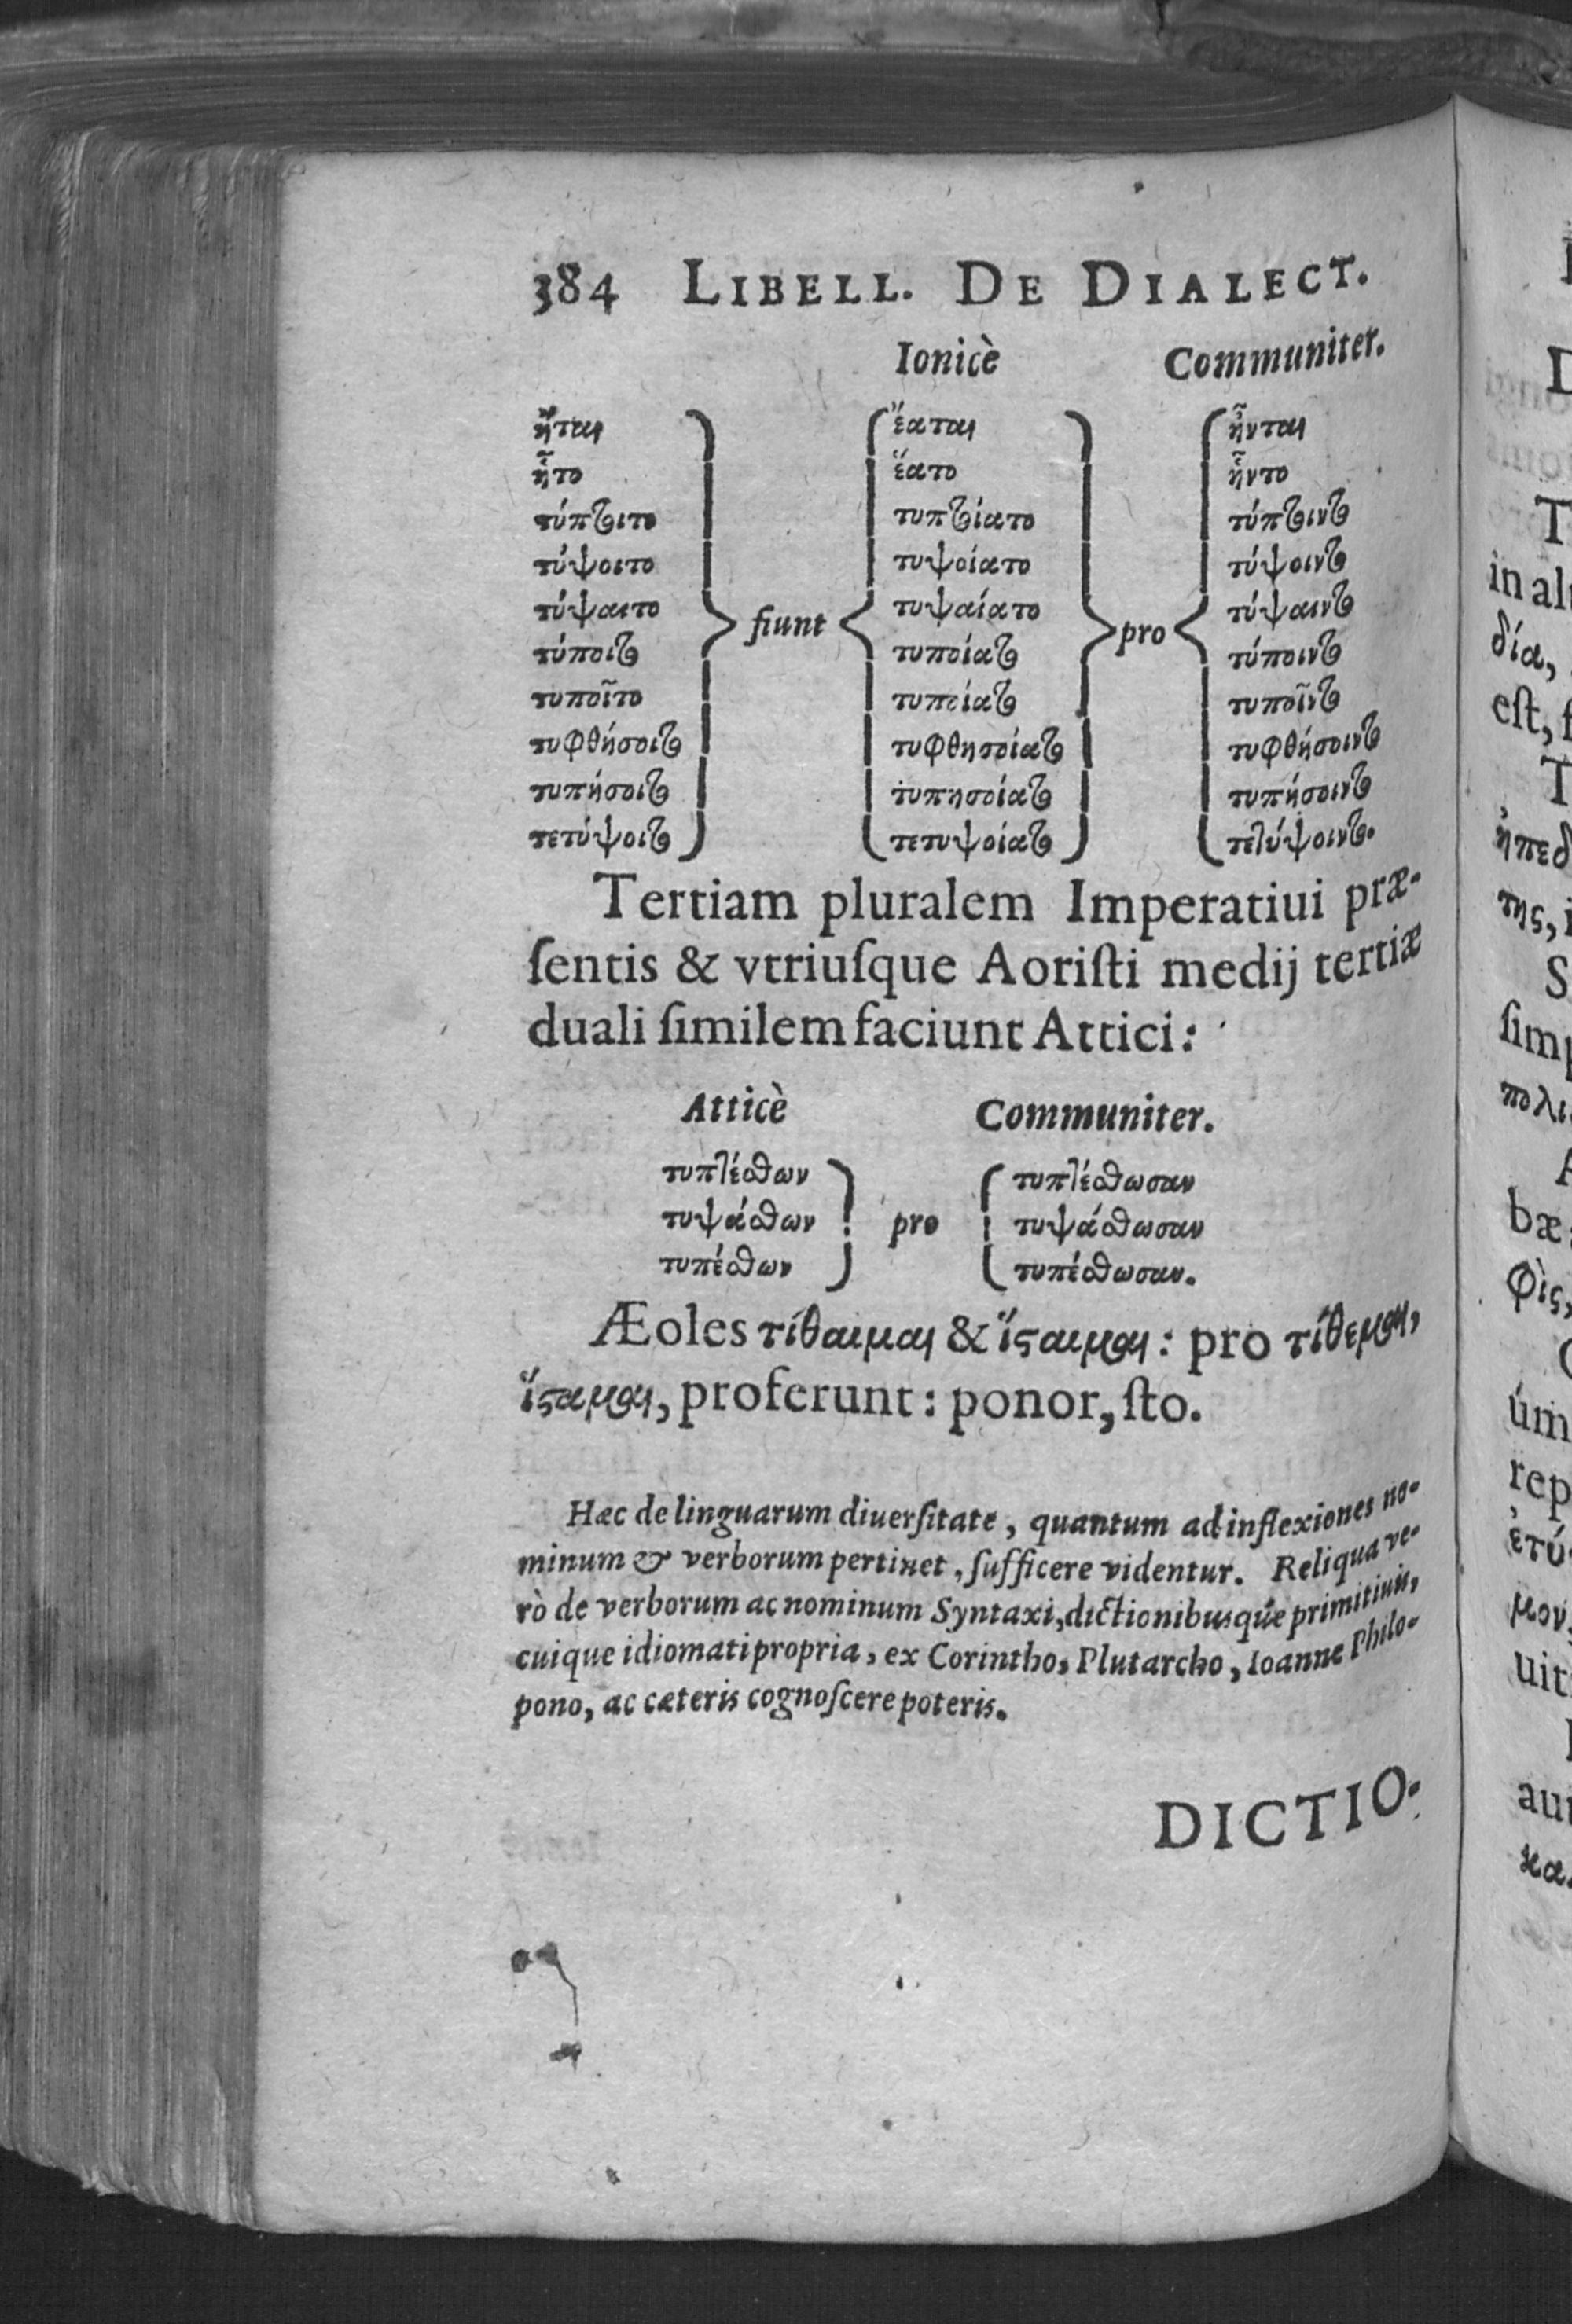 384 LIBELL. DE DIALECT.
Ionicè Communiter.
ἧται ἕαται ἧνται
ἧτο ἕατο ἧντο
τύπτοιτο τυπτοίατο τύπτοιντο
τύψοιτο τυψοίατο τύψοιντο
τύψαιτο τυψαίατο τύψαιντο
τύποιτο fiunt τυποίατο pro τύποιντο
τυποῖτο τυποίατο τυποῖντο
τυφθήσοιτο τυφθησοίατο τυφθήσοιντο
τυπήσοιτο τυπησοίατο τυπήσοιντο
τετύψοιτο τετυψοίατο τετύψοιντο.
Tertiam pluralem Imperatiui præ-
ſentis & vtriuſque Aoriſti medij tertiæ
duali ſimilem faciunt Attici:
Atticè Communiter.
τυπτέσθων τυπτέσθωσαν
τυψάσθων pro τυψάσθωσαν
τυπέσθων τυπέσθωσαν.
Æoles τίθαιμαι & ἵσταιμαι: pro τίθεμαι,
ἵσταμαι, proferunt: ponor, ſto.
Hæc de linguarum diuerſitate, quantum ad inflexiones no-
minum & verborum pertinet, ſufficere videntur. Reliqua ve-
rò de verborum ac nominum Syntaxi, dictionibusq́ue primitiuis,
cuique idiomati propria, ex Corintho, Plutarcho, Ioanne Philo-
pono, ac cæteris cognoſcere poteris.
DICTIO-